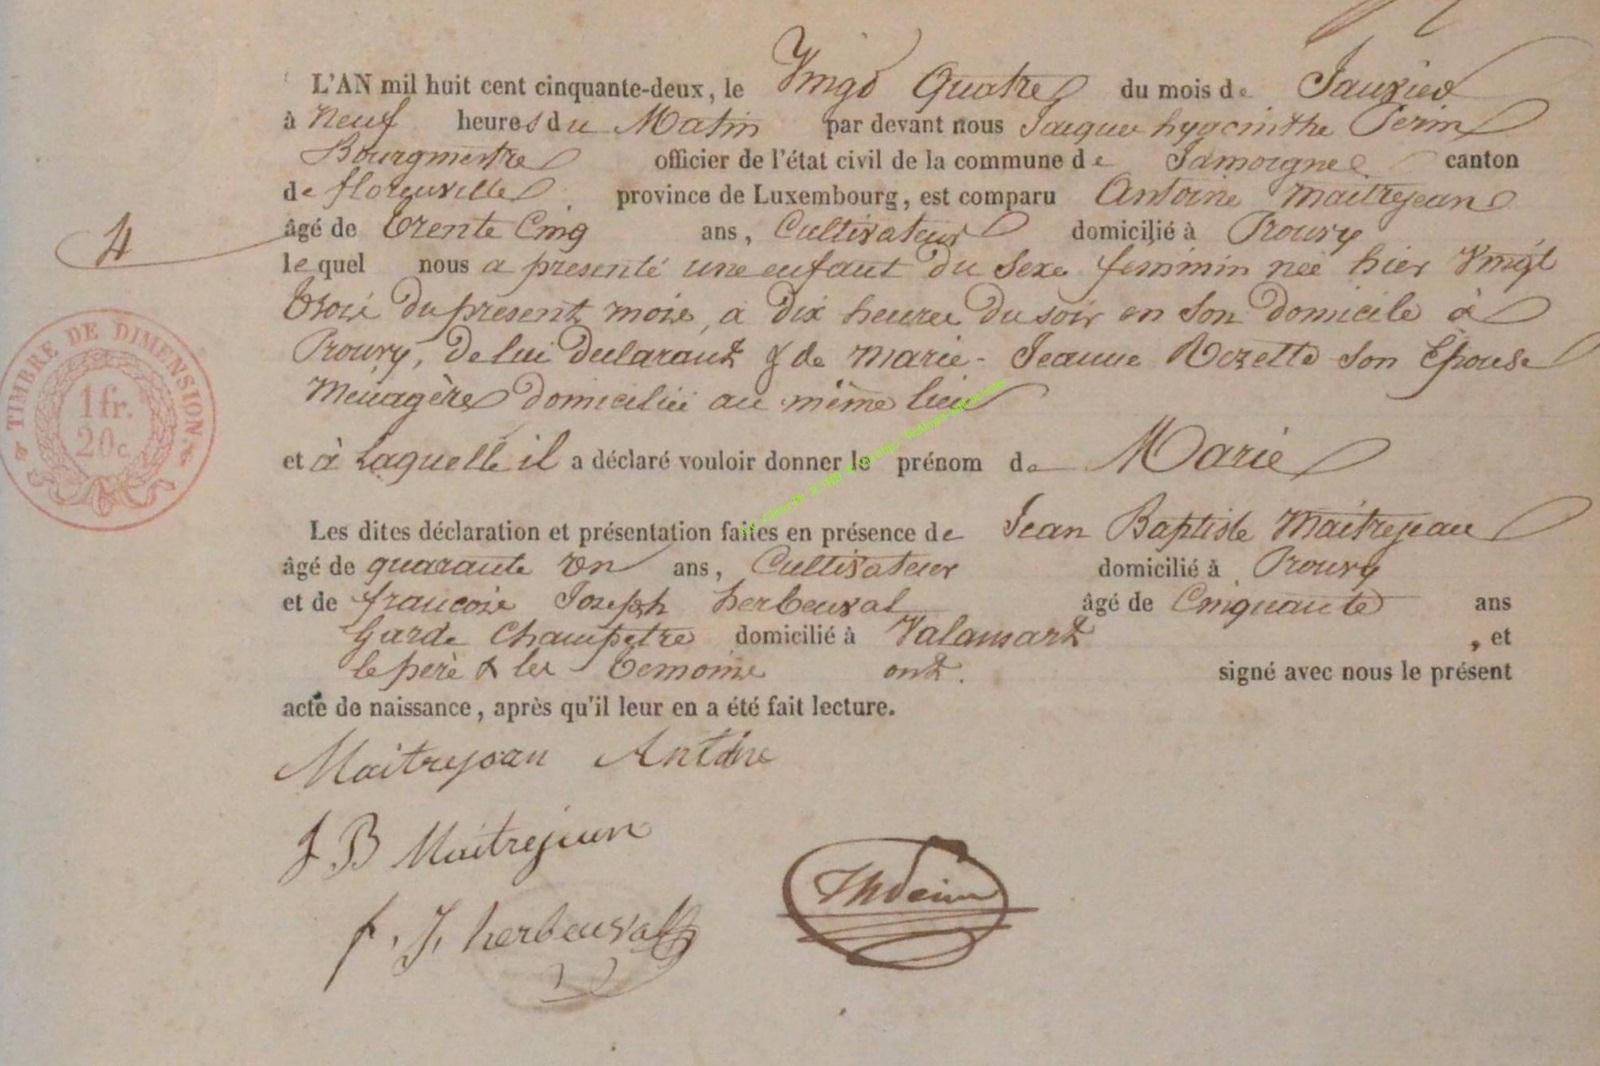 L'AN mil huit cent cinquante-deux, le Vingt Quatre du mois de Janvier
à neuf heures du Matin par devant nous Jacques hyacinthe Perin
Bourgmestre officier de l'état civil de la commune de Jamoigne canton
de florenville province de Luxembourg, est comparu Antoine Maitrejean
âgé de trente Cinq ans, Cultivateur domicilié à Prouvy
4
le quel nous a presenté une enfant du Sexe feminin née hier Vingt
trois du present mois, a dix heures du soir en son domicile à
Prouvy, de lui declarant & de marie-Jeanne Rozette son Epouse
Menagère domiciliés au même lieu
et à Laquelle il a déclaré vouloir donner le prénom de Marie
TIMBRE DE DIMENSION
1 fr.
20 c.
Les dites déclaration et présentation faites en présence de Jean Baptiste Maitrejean
âgé de quarante un ans, Cultivateur domicilié à Prouvy
et de francois Joseph herbeuval âgé de Cinquante ans
Garde Champetre domicilié à Valansart, et
le père & les temoins ont. signé avec nous le présent
acte de naissance, après qu'il leur en a été fait lecture.
Maitrejean Antoine
J B Maitrejean
f. J. herbeuval
JhPerin